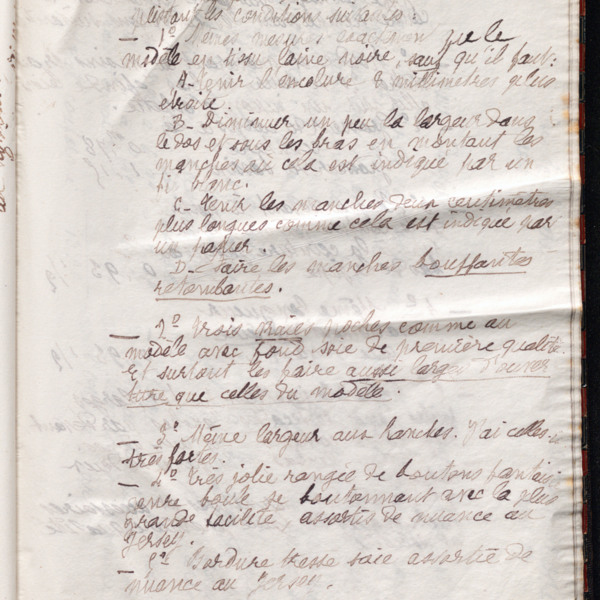 les conditions suivantes :
— 1° Mêmes mesures exactes que le
modèle en tissu laine noire, sauf qu'il faut :
A. Tenir l'encolure 8 millimètres plus
étroite.
B. Diminuer un peu la largeur dans
le dos et sous les bras en montant les
manches où cela est indiqué par un
fil blanc.
C. Tenir les manches deux centimètres
plus longues comme cela est indiqué par
un papier.
D. Faire les manches bouffantes
retombantes.
— 2° Trois vraies poches comme au
modèle avec fond soie de première qualité.
Et surtout les faire aussi larges d'ouver
ture que celles du modèle.
— 3° Même largeur aux hanches. J'ai celles-ci
très fortes.
— 4° Très jolie rangée de boutons fantaisie
genre boule se boutonnant avec la plus
grande facilité, assortis de nuance au
Jersey.
— 5° Bordure tresse soie assortie de
nuance au Jersey.